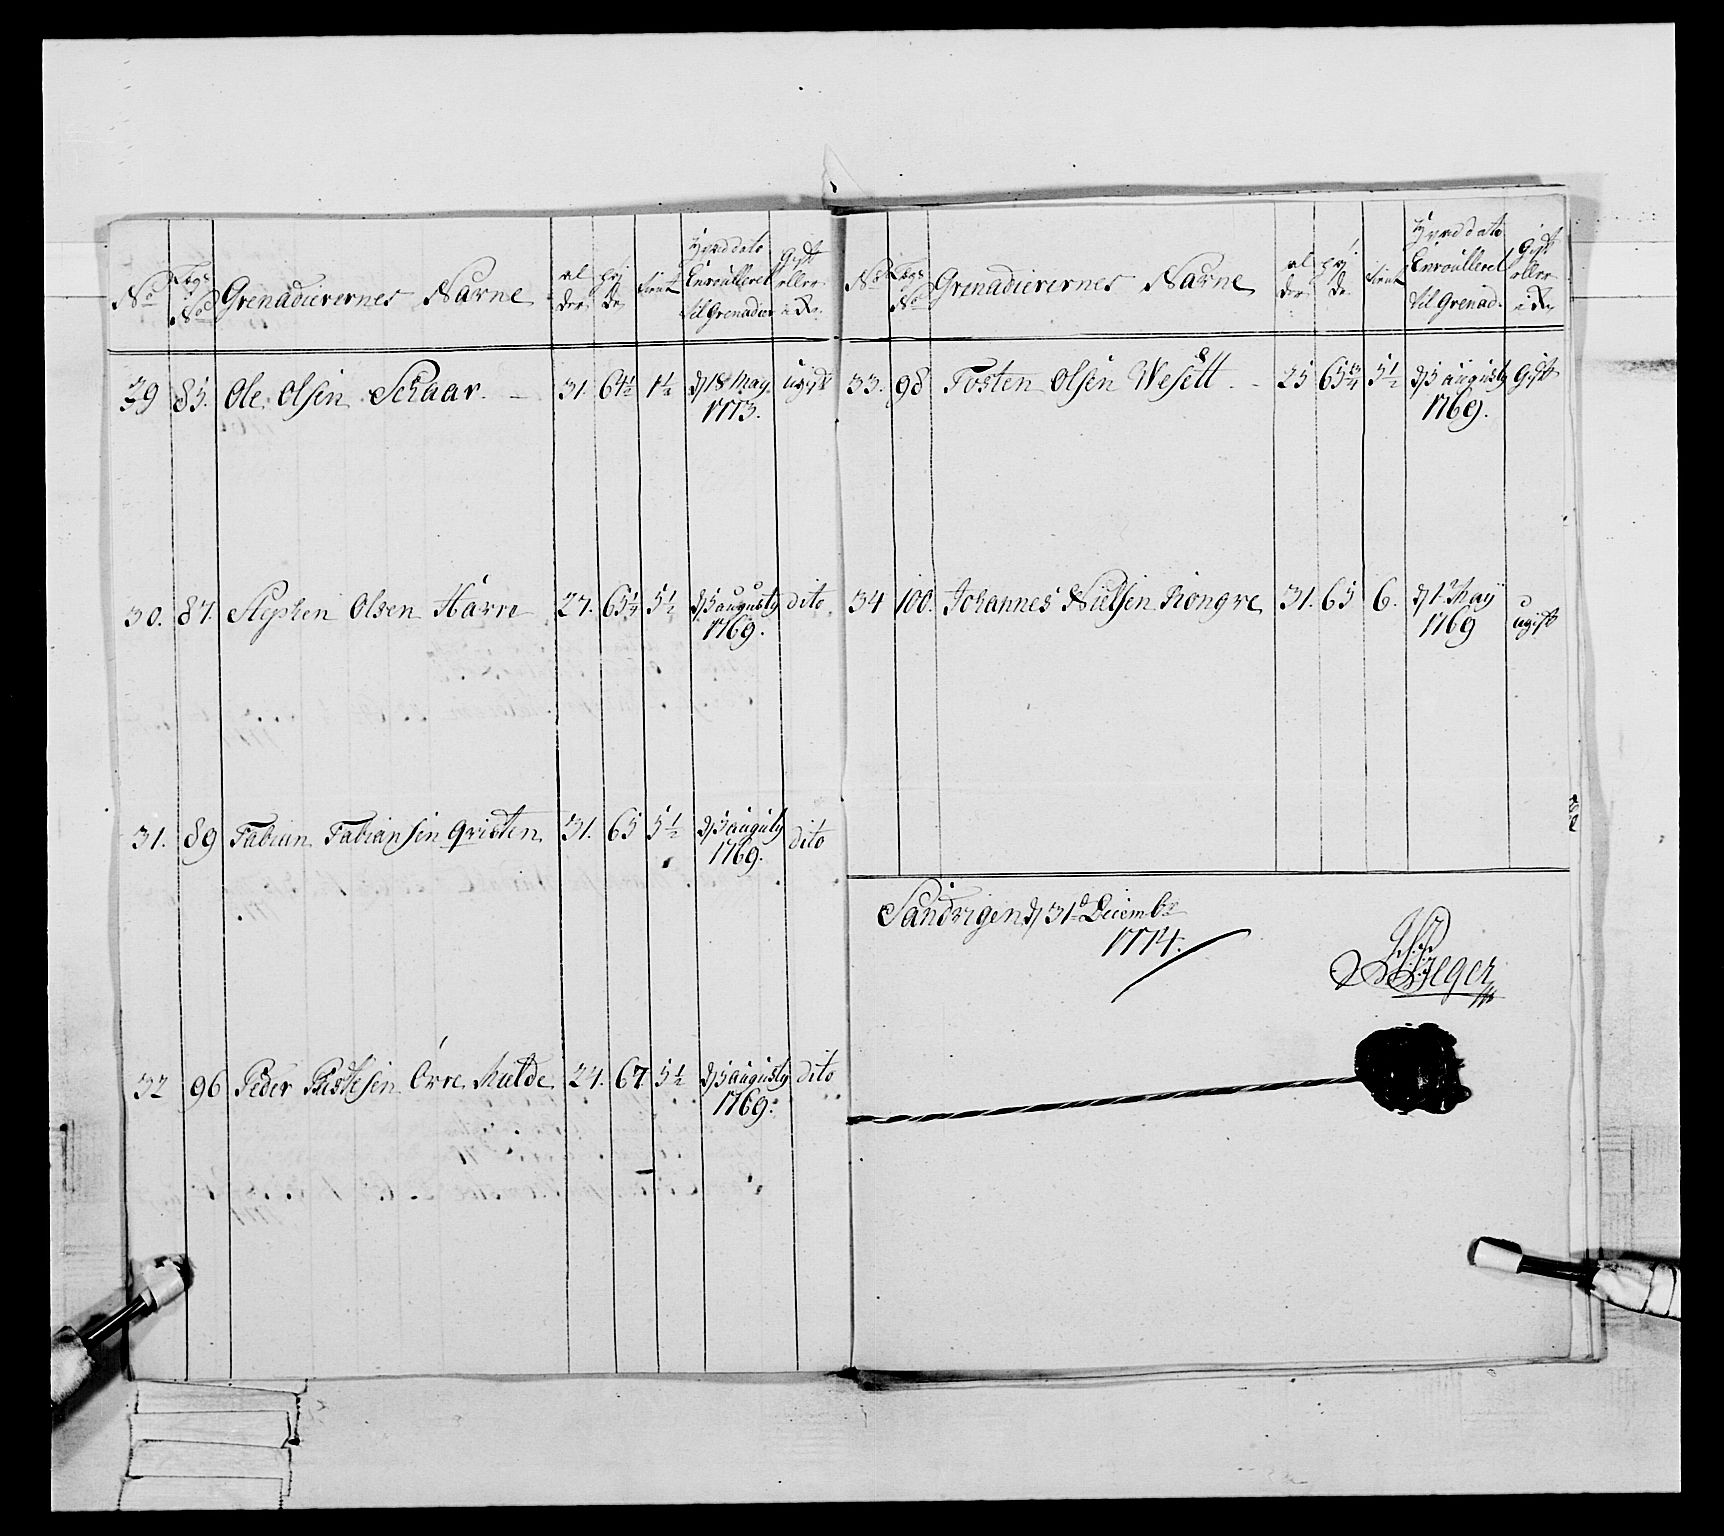 No
Lægs No
Grenadierernes Navne
al der
høj de
tient
hvad dato Enroulleret til Grenadier
Gift eller ei
29 85. Ole Olsen Schaar. 31. 64½ 1½ d 18 May 1773. ugift
30. 87. Stephen Olsen Harre 27. 65¼ 5½ d 5 augusty 1769. dito
31. 89 Fabian Fabiansen Qvisten 31. 65 5½ d 5 augusty 1769. dito
32 96 Peder Örre Mulde 27. 67 5½ d 5 augusty 1769. dito
No
Lægs No
Grenadierernes Navne
al der
høj de
tient
hvad dato Enroulleret til Grenad.
Gift eller ei
33. 98 Tosten Olsen Wesett 25 65¾ 5½ d 5 augusty 1769. Gift
34 100. Johannes Nielsen Kongre 31. 65 6. d 1 May 1769 ugift
Sandvigen d 31 Decembr
1774.